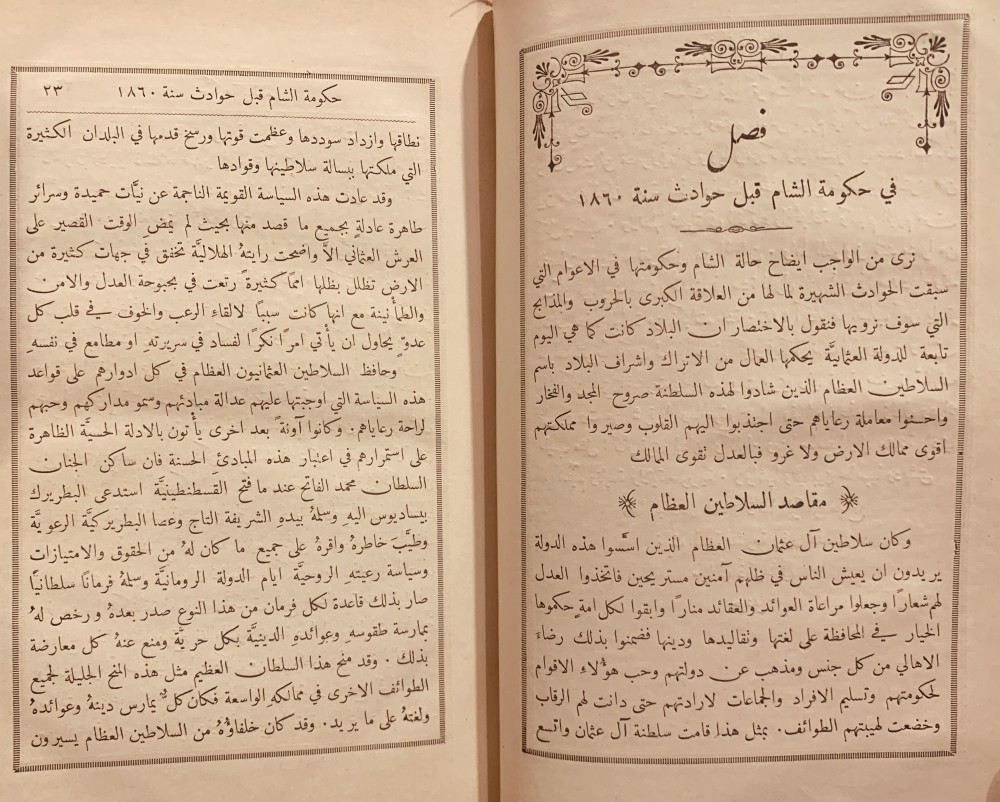 فصل
في حكومة الشام قبل حوادث سنة ١٨٦٠
نرى من الواجب ايضاح حالة الشام وحكومتها في الاعوام التي
سبقت الحوادث الشهيرة لما لها من العلاقة الكبرى بالحروب والمذابح
التي سوف نرويها فنقول بالاختصار ان البلاد كانت كما هي اليوم
تابعة للدولة العثمانيَّة يحكمها العمال من الاتراك واشراف البلاد باسم
السلاطين العظام الذين شادوا لهذه السلطنة صروح المجد والفخار
واحسنوا معاملة رعاياهم حتى اجتذبوا اليهم القلوب وصيروا مملكتهم
اقوى ممالك الارض ولا غرو فبالعدل تقوى الممالك
مقاصد السلاطين العظام
وكان سلاطين آل عثمان العظام الذين اسَّسوا هذه الدولة
يريدون ان يعيش الناس في ظلهم آمنين مستريحين فاتخذوا العدل
لهم شعارًا وجعلوا مراعاة العوائد والعقائد منارًا وابقوا لكل امةٍ حكموها
الخيار في المحافظة على لغتها وتقاليدها ودينها فضمنوا بذلك رضاءَ
الاهالي من كل جنس ومذهب عن دولتهم وحب هؤلاء الاقوام
لحكومتهم وتسليم الافراد والجماعات لارادتهم حتى دانت لهم الرقاب
وخضعت لهيبتهم الطوائف. بمثل هذا قامت سلطنة آل عثمان واتسع
حكومة الشام قبل حوادث سنة ١٨٦٠ ٢٣
نطاقها وازداد سوددها وعظمت قوتها ورسخ قدمها في البلدان الكثيرة
التي ملكتها ببسالة سلاطينها وقوادها
وقد عادت هذه السياسة القويمة الناجمة عن نيَّات حميدة وسرائر
طاهرة عادلةٍ بجميع ما قصد منها بحيث لم يمضِ الوقت القصير على
العرش العثماني الاَّ واضحت رايتهُ الهلاليَّة تخفق في جهات كثيرة من
الارض تظلل بظلها اممًا كثيرةً رتعت في بحبوحة العدل والامن
والطمأنينة مع انها كانت سببًا لالقاءِ الرعب والخوف في قلب كل
عدوٍّ يحاول ان يأتي امرًا نكرًا لفساد في سريرتهِ او مطامع في نفسهِ
وحافظ السلاطين العثمانيون العظام في كل ادوارهم على قواعد
هذه السياسة التي اوجبتها عليهم عدالة مبادئهم وسمو مداركهم وحبهم
لراحة رعاياهم. وكانوا آونةً بعد اخرى يأتون بالادلة الحسيَّة الظاهرة
على استمرارهم في اعتبار هذه المبادئ الحسنة فان ساكن الجنان
السلطان محمد الفاتح عند ما فتح القسطنطينيَّة استدعى البطريرك
بيساديوس اليهِ وسلمهُ بيدهِ الشريفة التاج وعصا البطريركيَّة الرعويَّة
وطيَّب خاطرهُ واقرهُ على جميع ما كان لهُ من الحقوق والامتيازات
وسياسة رعيتهِ الروحيَّة ايام الدولة الرومانيَّة وسلمهُ فرمانًا سلطانيًّا
صار بذلك قاعدة لكل فرمان من هذا النوع صدر بعدهُ ورخص لهُ
بممارسة طقوسهِ وعوائدهِ الدينيَّة بكل حريَّة ومنع عنهُ كل معارضة
بذلك. وقد منح هذا السلطان العظيم مثل هذه المنح الجليلة لجميع
الطوائف الاخرى في ممالكهِ الواسعة فكان كلٌّ يمارس دينهُ وعوائدهُ
ولغتهُ على ما يريد. وقد كان خلفاؤهُ من السلاطين العظام يسيرون